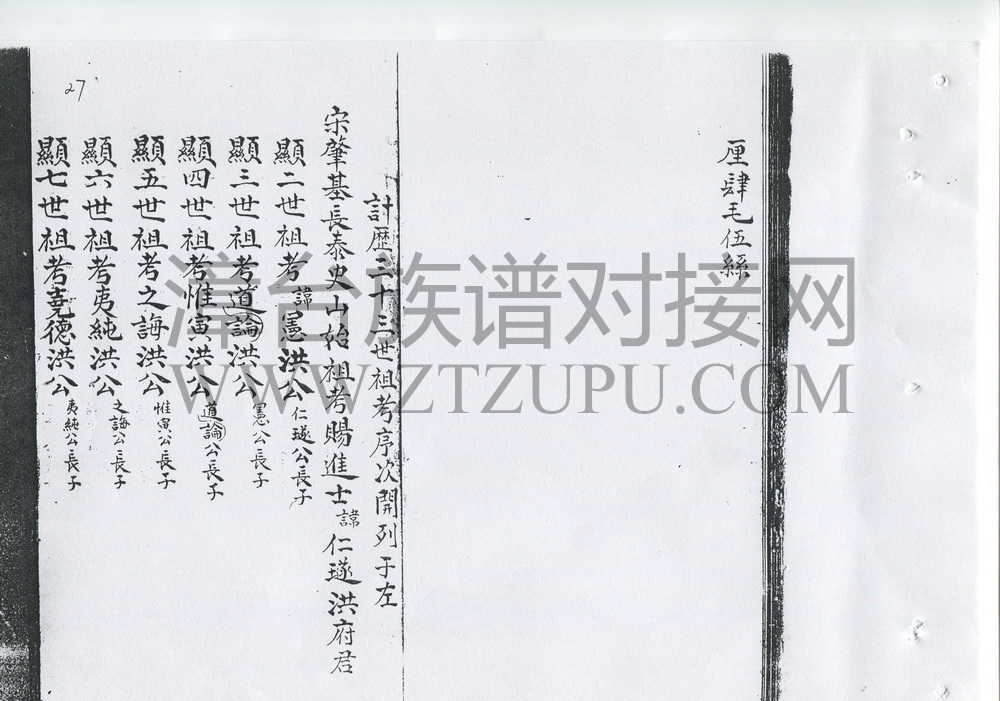 厘肆毛伍絲
計歷二十三世祖考序次開列于左
宋肇基長泰史山始祖考賜進士諱仁璲洪府君
顯二世祖考諱憲洪公仁璲公長子
顯三世祖考道論洪公憲公長子
顯四世祖考惟寅洪公道論公長子
顯五世祖考之誨洪公惟寅公長子
顯六世祖考夷純洪公之誨公長子
顯七世祖考堯德洪公夷純公長子
27
漳台族谱对接网
WWW.ZTZUPU.COM